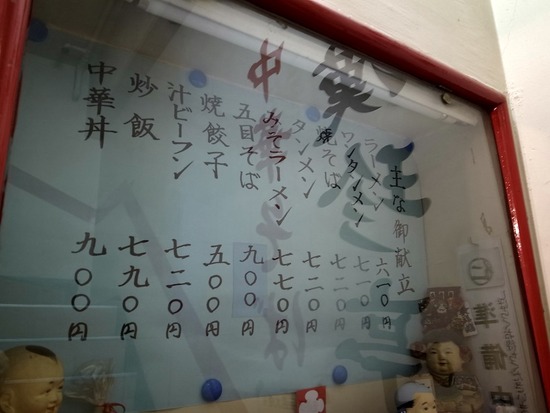 主な御献立
ラーメン 六一〇円
ワンタンメン 七一〇円
焼そば 七二〇円
タンメン 七二〇円
みそラーメン 七七〇円
五目そば 九〇〇円
焼餃子 五〇〇円
汁ビーフン 七二〇円
炒飯 七九〇円
中華丼 九〇〇円
準備中